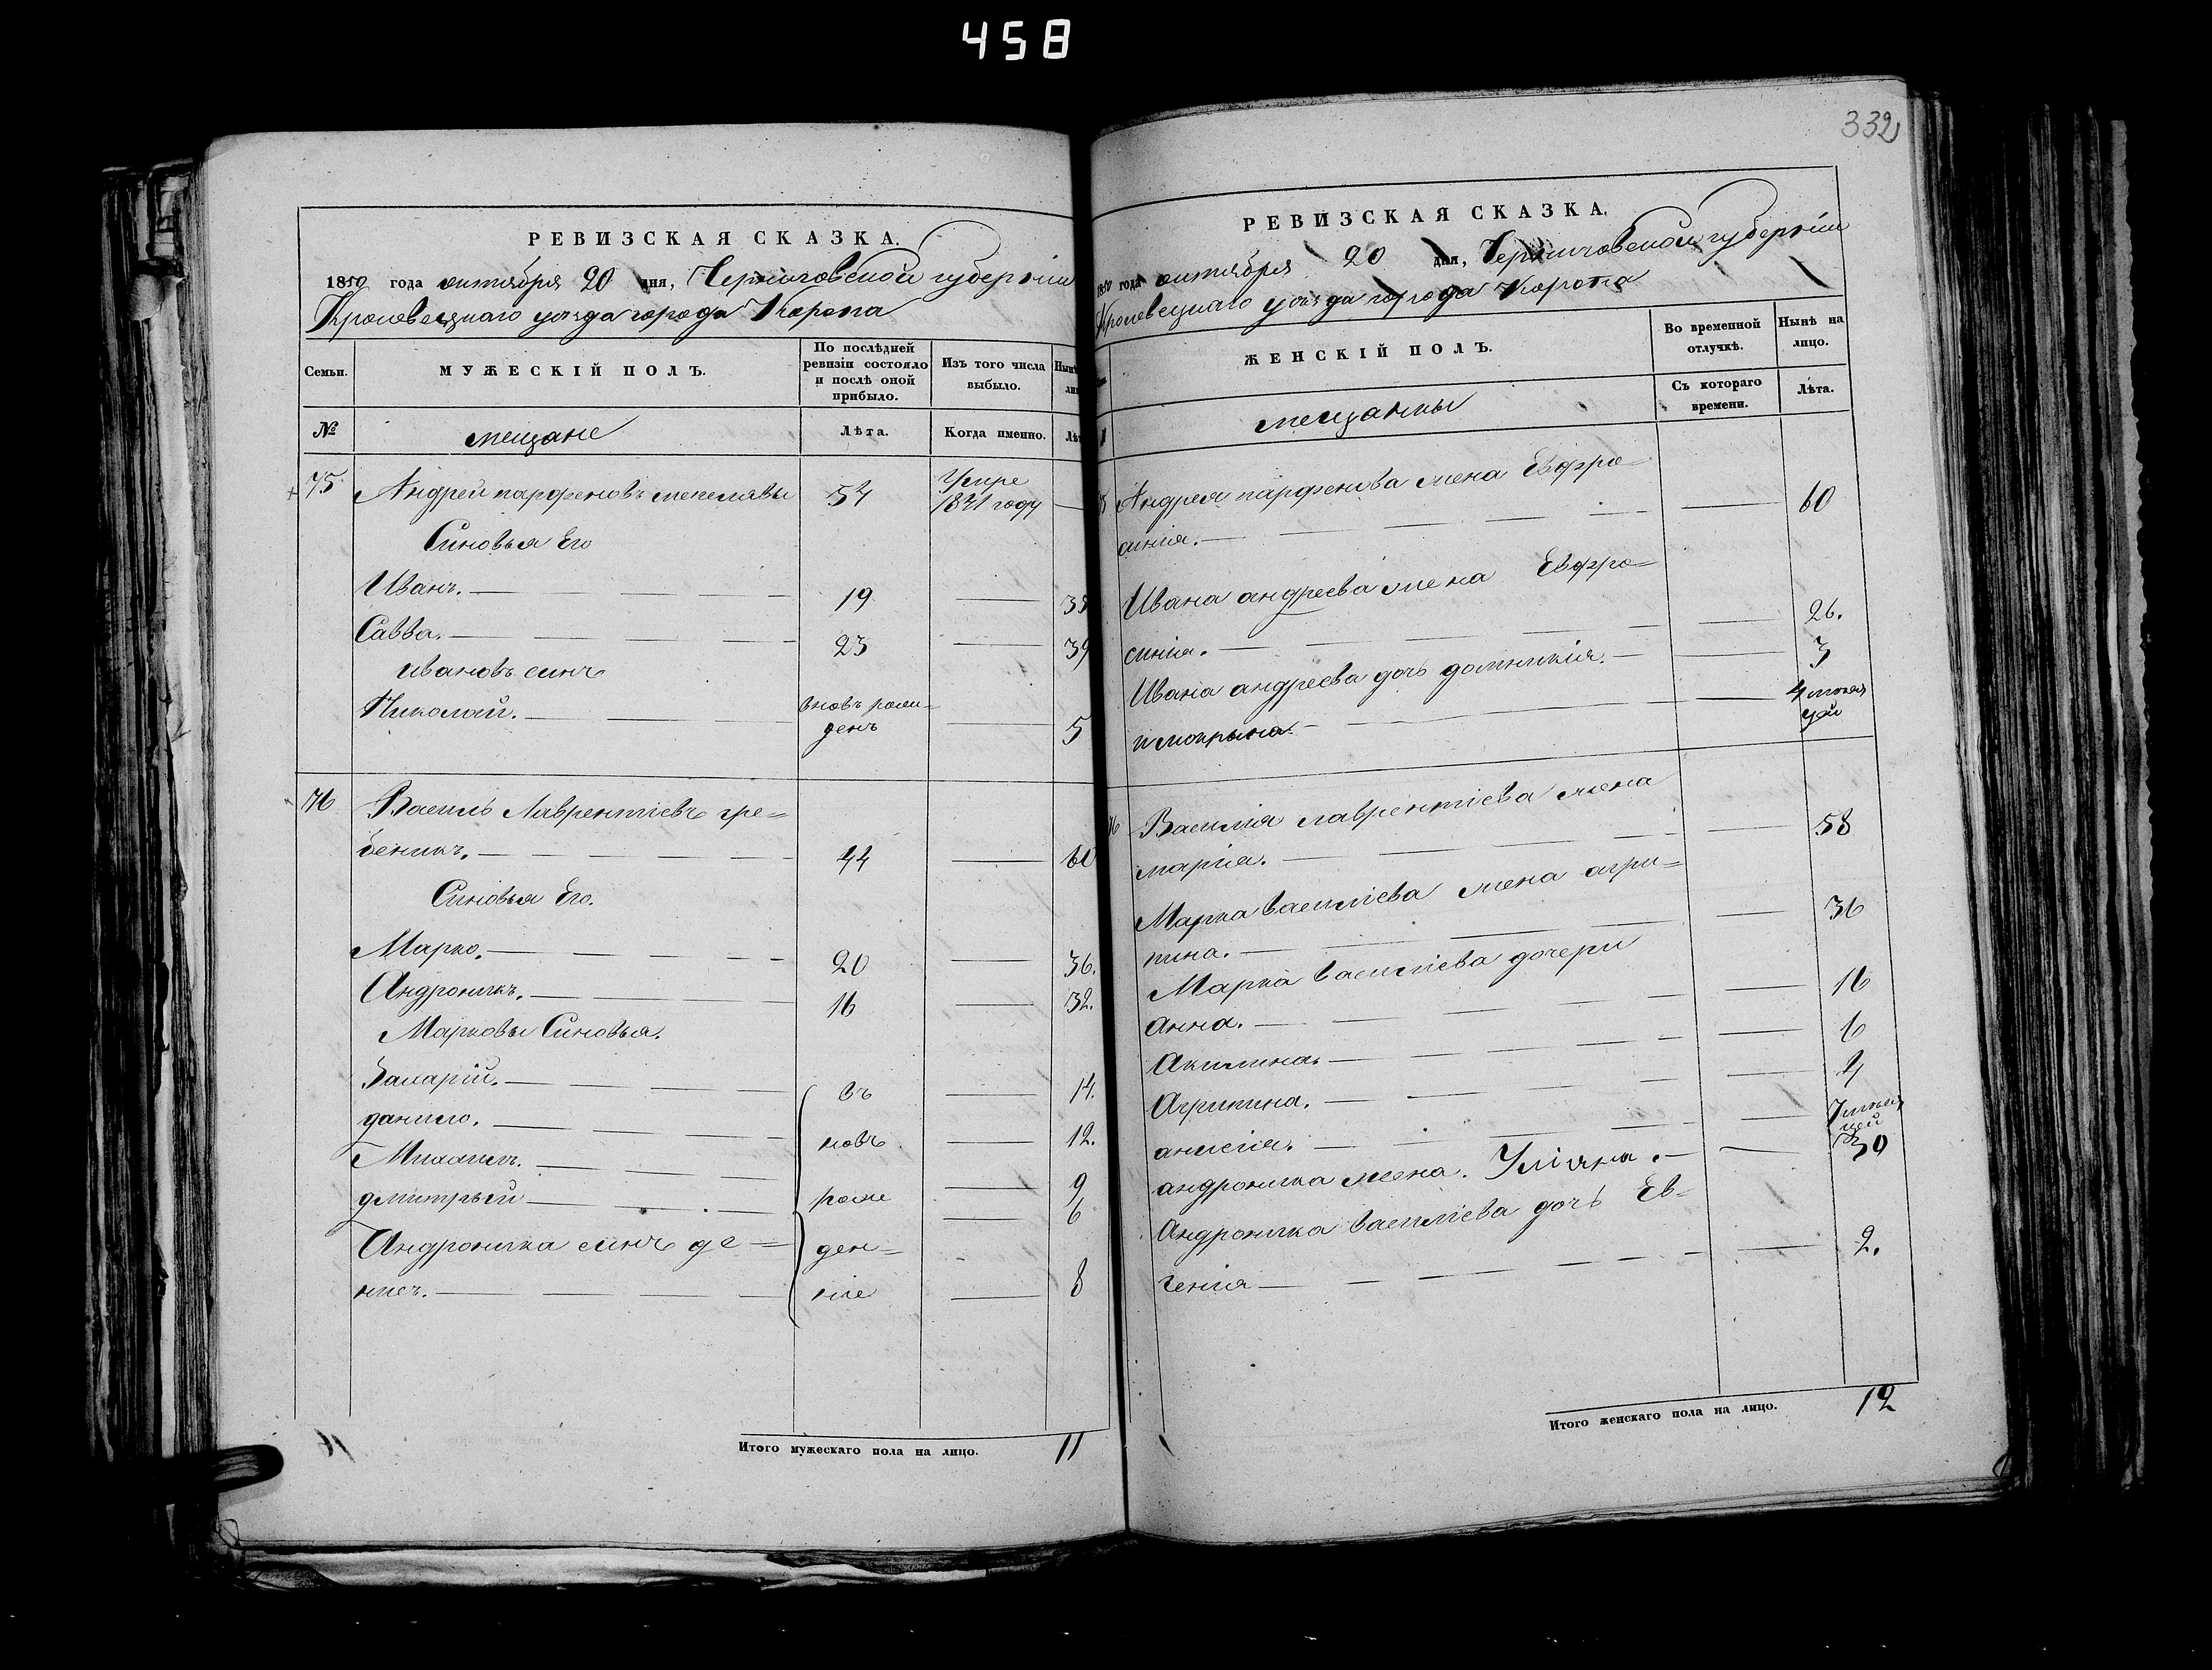 458
РЕВИЗСКАЯ СКАЗКА.
1850 года октября 20 дня, Черниговской губерніи
Кролевецкаго уезда города Коропа
Семьи.
МУЖЕСКІЙ ПОЛЪ.
По послѣдней
ревизіи состояло
и послѣ оной
прибыло.
Изъ того числа
выбыло.
№
мещане
Лѣта.
Когда именно.
75
Андрей парфеновъ
54
Умре
1841 году
Синовья Его
Иванъ.
19
Савва.
23
39
ивановъ синъ
Николай.
вновь рож-
денъ
5
76
Василь Лаврентіевъ гре=
беникъ.
44
60
Синовья Его.
Марко.
20
36.
Андроникъ.
16
32.
Марковы Синовья.
Захарій.
въ
14.
данило.
новь
12.
Михаилъ.
9
дмитрый
рож
6
Андроника синъ де=
ден=
нисъ.
ніе
8
Итого мужескаго пола на лицо.
11
332
РЕВИЗСКАЯ СКАЗКА.
1850 года октября 20 дня, Черниговской губерніи
Кролевецкаго уезда города Коропа
ЖЕНСКІЙ ПОЛЪ.
Во временной
отлучкѣ.
Нынѣ на
лицо.
Съ котораго
времени.
Лѣта.
мещанки
Андрея парфенова жена Евфро=
синія.
60
Ивана андреева жена Евфро=
синія.
26.
Ивана андреева дочь домникія.
3
и мокрына.
4 меся
цей
Василія лаврентіева жена
марія.
58
Марка василіева жена агри=
пина.
36
Марка василіева дочери
анна.
16
Акилина.
6
Агрипина.
4
анисія.
7 меся
цей
андроника жена. Уліяна.
30
Андроника василіева дочь Ев=
генія
2.
Итого женскаго пола на лицо.
12